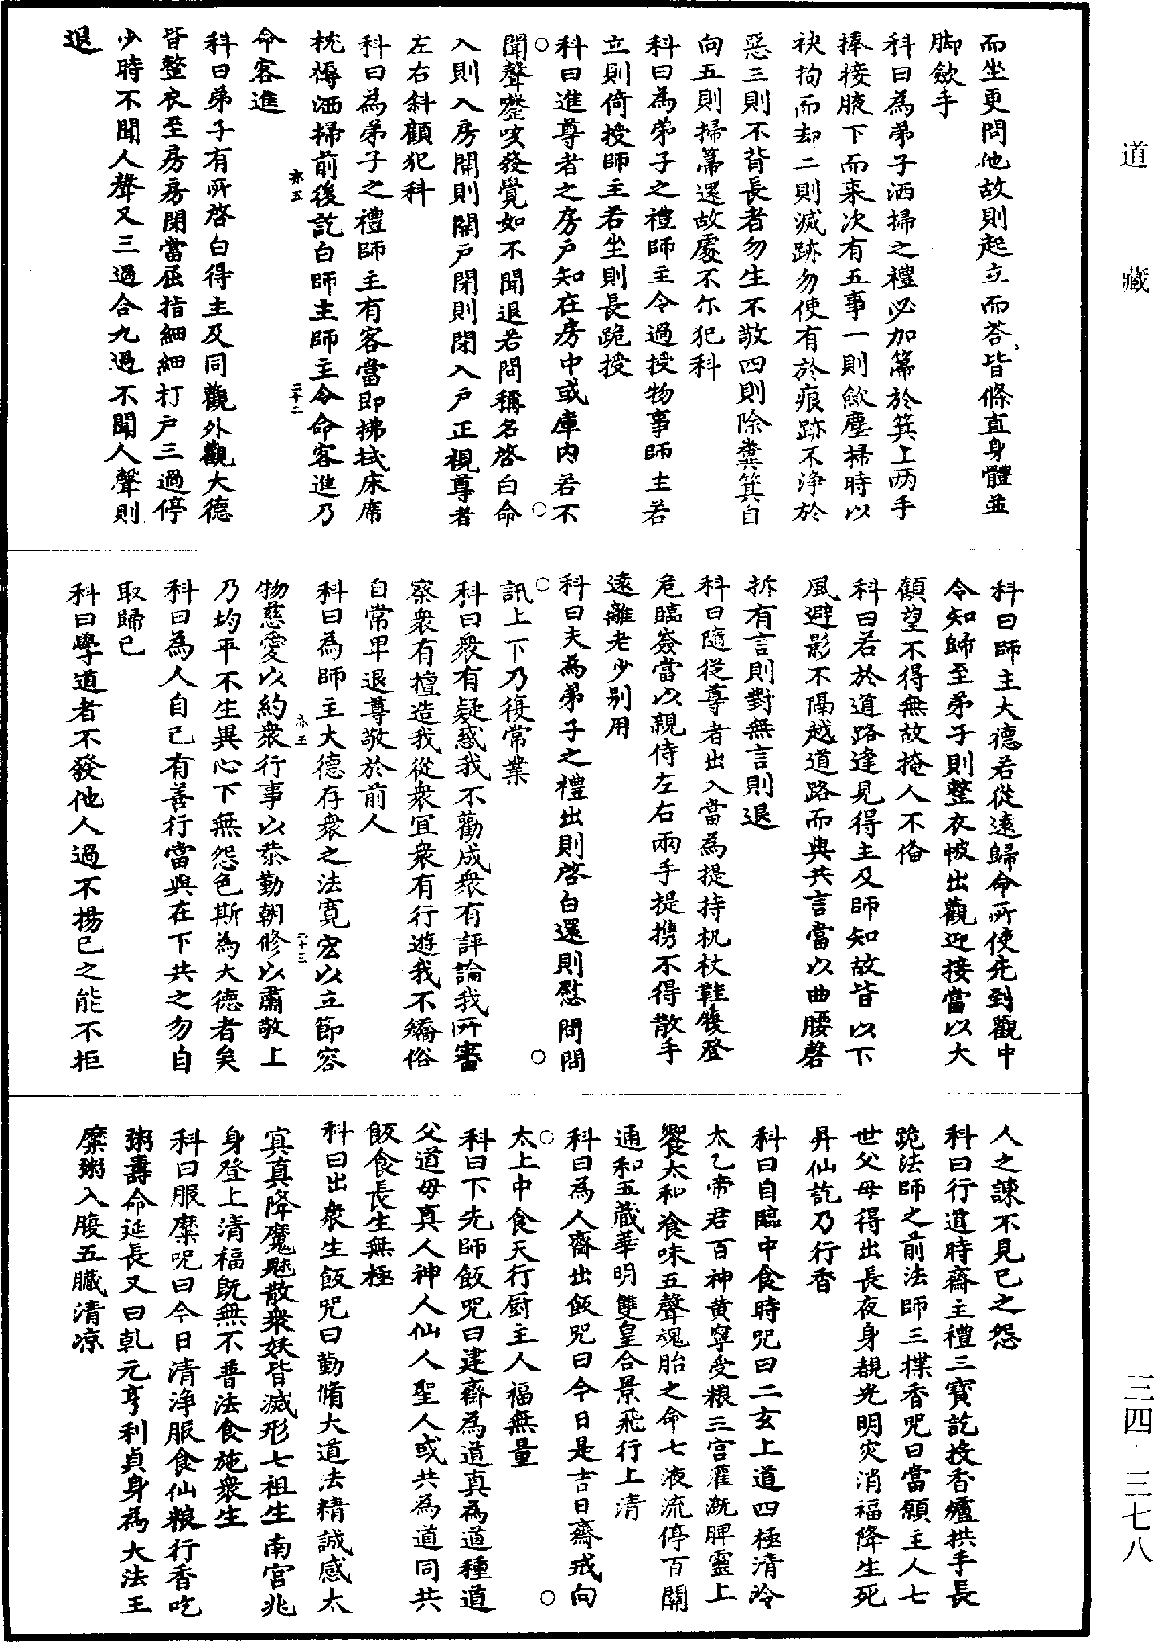 而坐更問他故則起立而荅皆條直身體並
脚斂手
科曰為弟子洒掃之禮必加箒於箕上两手
捧接腋下而来次有五事一則斂塵掃時以
袂拘而却二則滅跡勿使有於痕跡不浄於
惡三則不背長者勿生不敬四則除糞箕自
向五則掃箒還故處不尓犯科
科曰為弟子之禮師主令過授物事師主若
立則倚授師主若坐則長跪授
科曰進尊者之房戶知在房中或庫內若不
聞聲謦咳發覺如不聞退若問稱名啓白命
入則入房開則開戶閉則閉入戶正視尊者
左右斜顧犯科
科曰為弟子之禮師主有客當即拂拭床席
枕褥洒掃前後訖白師主師主令命客進乃
命客進
科曰弟子有所啓白得主及同觀外觀大德
皆整衣至房房閉當屈指細細打戶三過停
少時不聞人聲又三過合九過不聞人聲則
退
亦五
二十二
科曰師主大德若從遠歸命所使先到觀中
令知歸至弟子則整衣帔出觀迎接當以大
顧望不得無故掩人不俻
科曰若於道路逢見得主及師知故皆以下
風避影不隔越道路而與共言當以曲腰磬
折有言則對無言則退
科曰隨從尊者出入當為提持机杖鞋履登
危臨嶮當以親侍左右兩手提携不得散手
遠離老少别用
科曰夫為弟子之禮出則啓白還則慰問問
訊上下乃復常業
科曰衆有疑惑我不勸成衆有評論我所審
察衆有擅造我從衆宜衆有行遊我不矯俗
自常卑退尊敬於前人
科曰為師主大德存衆之法寛宏以立節容
物慈愛以約衆行事以恭勤朝修以肅敬上
乃均平不生異心下無怨色斯為大德者矣
科曰為人自己有善行當與在下共之勿自
取歸己
科曰學道者不發他人過不揚己之能不拒
亦五
二十三
人之諫不見己之怨
科曰行道時齋主禮三寶訖授香爐拱手長
跪法師之前法師三揲香咒曰當願主人七
世父母得出長夜身覩光明灾消福降生死
昇仙訖乃行香
科曰自臨中食時咒曰二玄上道四極清泠
太乙帝君百神黄寧受粮三宮灌溉脾靈上
饗太和飡味五聲魂胎之命七液流停百關
通和五藏華明雙皇合景飛行上清
科曰為人齋出飯咒曰今日是吉日齋戒向
太上中食天行厨主人福無量
科曰下先師飯咒曰建齋為道真為道種道
父道母真人神人仙人聖人或共為道同共
飯食長生無極
科曰出衆生飯咒曰勤脩大道法精誠感太
寘真降魔魅散衆妖皆滅形七祖生南宮兆
身登上清福既無不普法食施衆生
科曰服糜咒曰今日清浄服食仙粮行香吃
粥壽命延長又曰乹元亨利貞身為大法王
糜粥入腹五臟清凉
道藏
三四·三七八